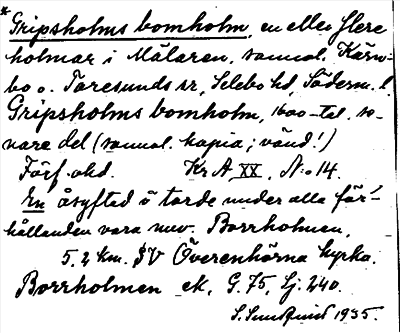 * Gripsholms bomholm, en eller flere
holmar i Mälaren, sannol. Kärn-
bo o. Taresunds sr, Selebo hd, Söderm. l.
Gripsholms bomholm, 1600-tal. se-
nare del (sannol. kopia; vänd!)
Förf. okd. Kr A XX, N:o 14.
En åsyftad ö torde under alla för-
hållanden vara nuv. Borrholmen,
5,2 km. SV Överenhörna kyrka.
Borrholmen ek. G. 75, Lj. 240.
S. Sundquist 1935.